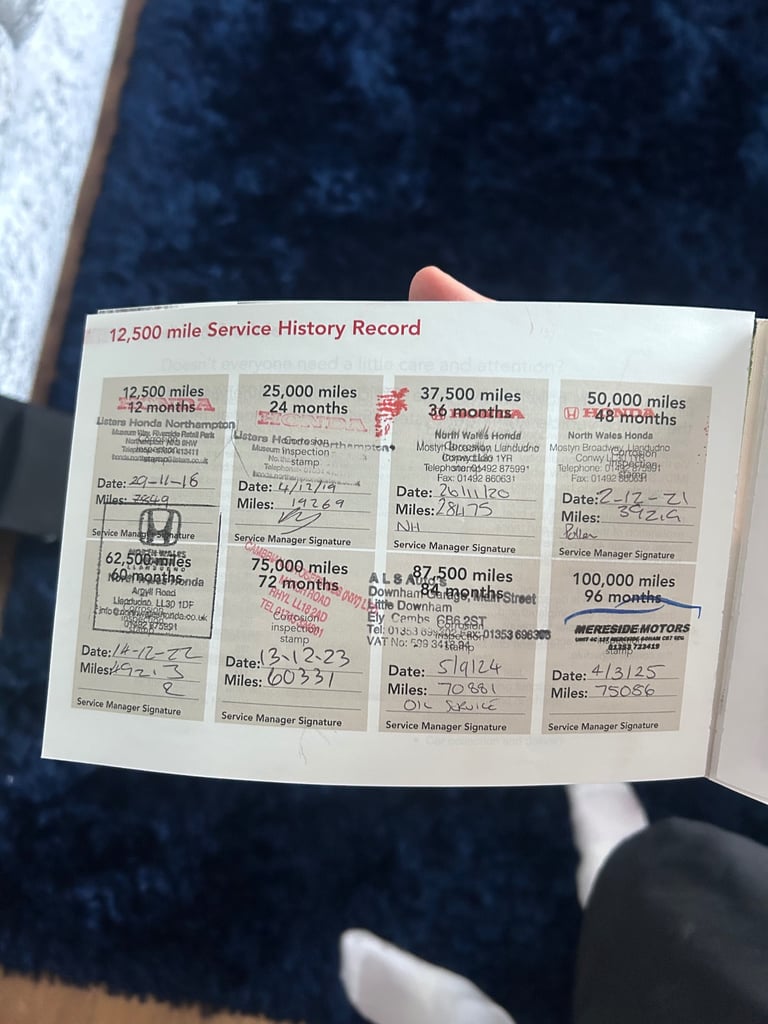 12,500 mile Service History Record
12,500 miles
12 months
HONDA
Listers Honda Northampton
Museum Way, Riverside Retail Park
Date: 29-11-16
Miles: 7849
Service Manager Signature
25,000 miles
24 months
HONDA
Listers Honda Northampton
Corrosion
inspection
stamp
Date: 4/12/19
Miles: 19269
Service Manager Signature
37,500 miles
36 months
HONDA
North Wales Honda
Mostyn Broadway, Llandudno
Conwy LL30 1YR
Telephone: 01492 875991
Fax: 01492 860631
Date: 26/11/20
Miles: 28475
NH
Service Manager Signature
50,000 miles
48 months
HONDA
North Wales Honda
Mostyn Broadway, Llandudno
Conwy LL30 1YR
Telephone: 01492 875991
Fax: 01492
Date: 2-12-21
Miles:
Pollen
Service Manager Signature
62,500 miles
60 months
NORTH WALES
North Wales Honda
Argyll Road
Llandudno LL30 1DF
01492 875991
Date: 14-12-22
Miles: 492.3
2
Service Manager Signature
75,000 miles
72 months
ROAD
RHYL LL18 2AD
Corrosion
inspection
stamp
Date: 13-12-23
Miles: 60331
Service Manager Signature
87,500 miles
84 months
Downham Garage, Main Street
Little Downham
Ely Cambs CB6 2ST
Tel: 01353 Fax: 01353
VAT No:
Date: 5/9/24
Miles: 70881
OIL SERVICE
Service Manager Signature
100,000 miles
96 months
MERESIDE MOTORS
01353 723419
stamp
Date: 4/3/25
Miles: 75086
Service Manager Signature